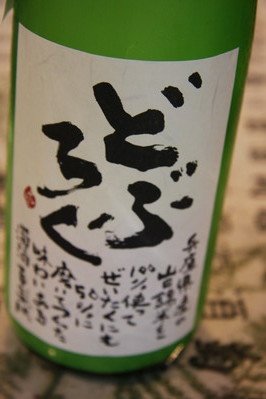 どぶ
ろく
兵庫県産の
山田錦米を
100%使って
ぜいたくにも
50%に
磨いてから
味わいある